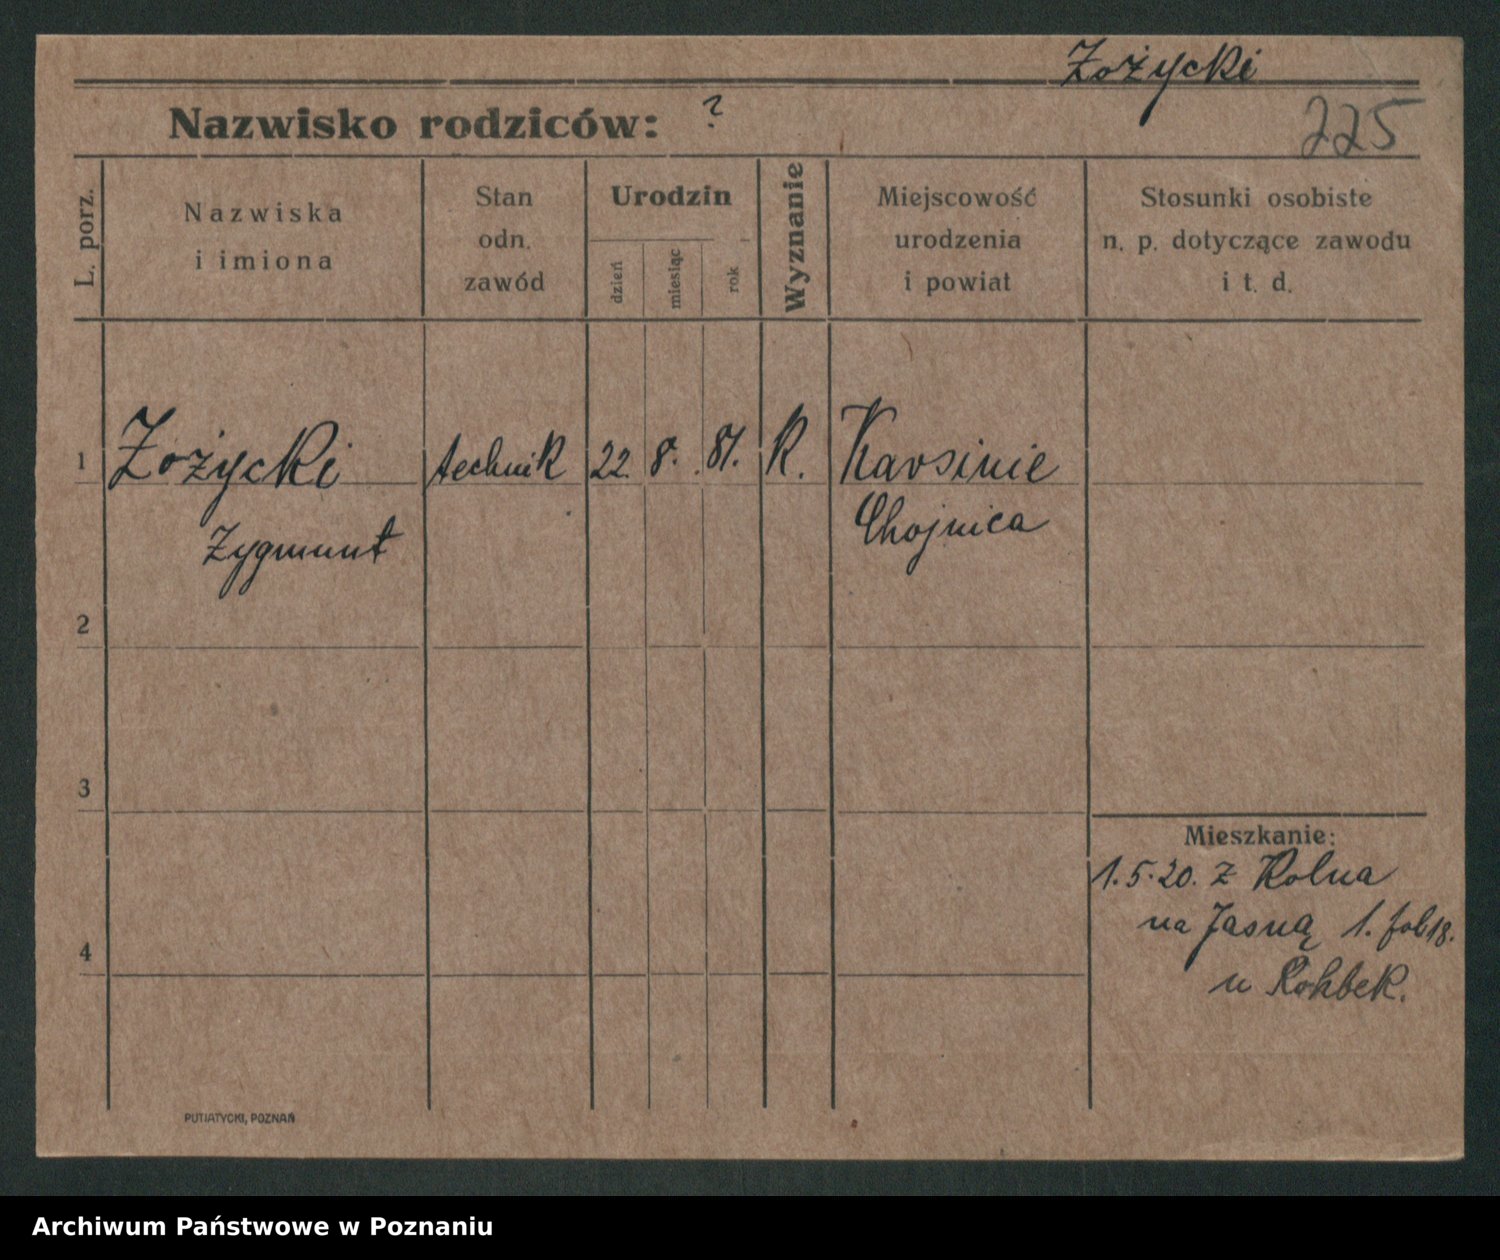 Zożycki
225
Nazwisko rodziców: ?
L. porz.
Nazwiska
i imiona
Stan
odn.
zawód
Urodzin
dzień
miesiąc
rok
Wyznanie
Miejscowość
urodzenia
i powiat
Stosunki osobiste
n. p. dotyczące zawodu
i t. d.
1 Zożycki technik 22. 8. 81. R. Karsinie
Zygmunt Chojnica
2
3
Mieszkanie:
1.5.20. z Rolna
na Jasną 1. fol 18.
4
u Rohbek.
PUTIATYCKI, POZNAŃ
Archiwum Państwowe w Poznaniu